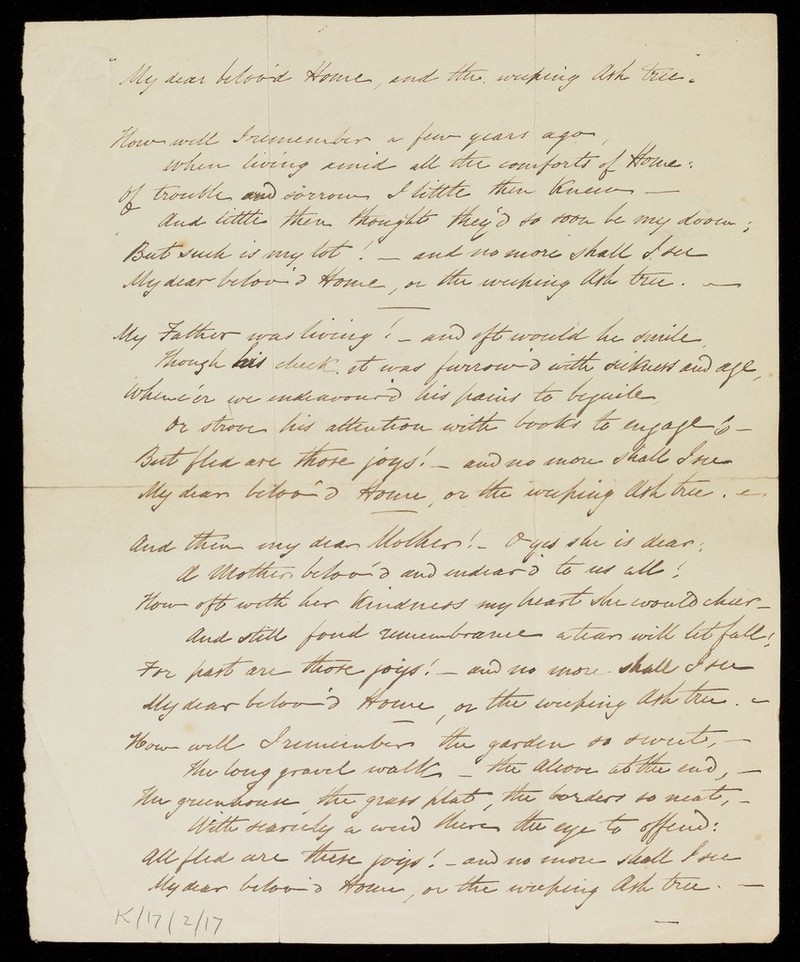 "My dear belov'd Home, and the weeping Ash tree."
How well I remember a few years ago,
when living amid all the comforts of Home:
Of trouble and sorrow I little then knew —
And little then thought they'd so soon be my doom;
But such is my lot! — and no more shall I see
My dear belov'd Home, or the weeping Ash tree. —
My Father was living! — and oft would he smile,
Though his cheek it was furrow'd with sickness and age,
Whene'er we endeavour'd his pains to beguile
Or strove his attention with books to engage; —
But fled are those joys! — and no more shall I see
My dear belov'd Home, or the weeping Ash tree. —
And then my dear Mother! — O yes she is dear;
A Mother belov'd and endear'd to us all!
How oft with her kindness my heart she would cheer —
And still fond remembrance a tear will let fall!
For past are those joys! — and no more shall I see
My dear belov'd Home, or the weeping Ash tree. —
How well I remember the garden so sweet, —
The long gravel walk — the Alcove at the end, —
The greenhouse the grass plat, the borders so neat, —
With scarcely a weed there the eye to offend:
All fled are these joys! — and no more shall I see
My dear belov'd Home, or the weeping Ash tree. —
K/17/2/17